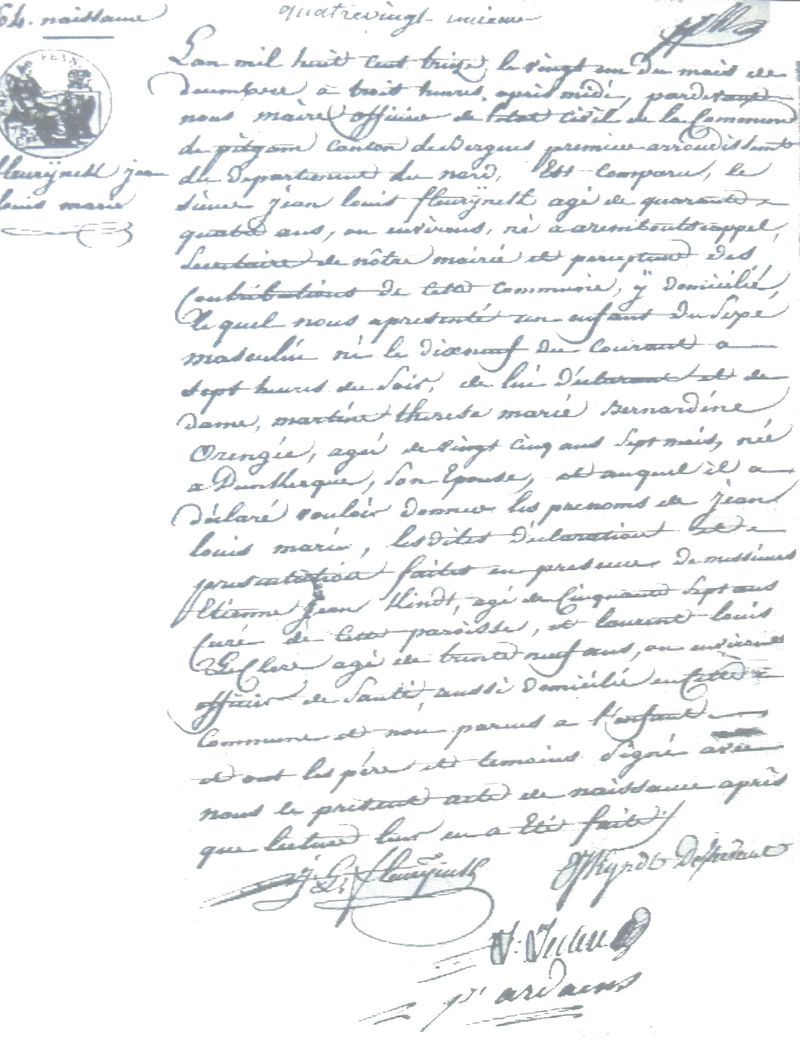 64. naissance
quatrevingt unieme
fleurÿnck jean
louis marie
L'an mil huit cent treize le vingt un du mois de
decembre a trois heures après midi, pardevant
nous maire officier de l'état civil de la Commune
de pitgam canton de Bergues premier arrondissement
du departement du nord, Est comparu, le
sieur jean louis fleurÿnck agé de quarante
quatre ans, ou environs, né a arembouts cappel,
Secretaire de nôtre mairie et percepteur des
Contributions de cette commune, ÿ domicilié,
le quel nous a presenté un enfant du Sexe
masculin né le dixneuf du courant a
sept heures du Soir, de lui déclarant et de
dame, martine therese marie Bernardine
Orengée, agée de vingt cinq ans Sept mois, née
a Dunkerque, Son Epouse, et auquel il a
déclaré vouloir donner les prenoms de jean
louis marie, les dites déclaration et
presentation faites en presence de messieurs
Etienne jean agé de Cinquante Sept ans
Curé de cette paroisse, et laurent louis
Le Clerc agé de trente neuf ans, ou environs
officier de Santé, aussi domicilié en Cette
Commune et non parens a l'enfant
et ont les pére et temoins Signé avec
nous le présent acte de naissance après
que lecture leur en a Eté faite /
J. L. fleurÿnck